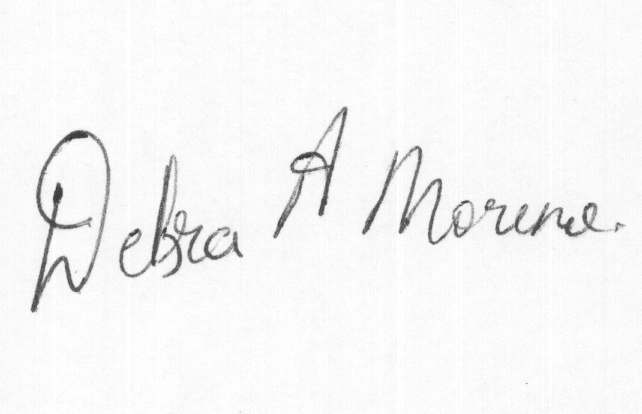 Debra A Morene.